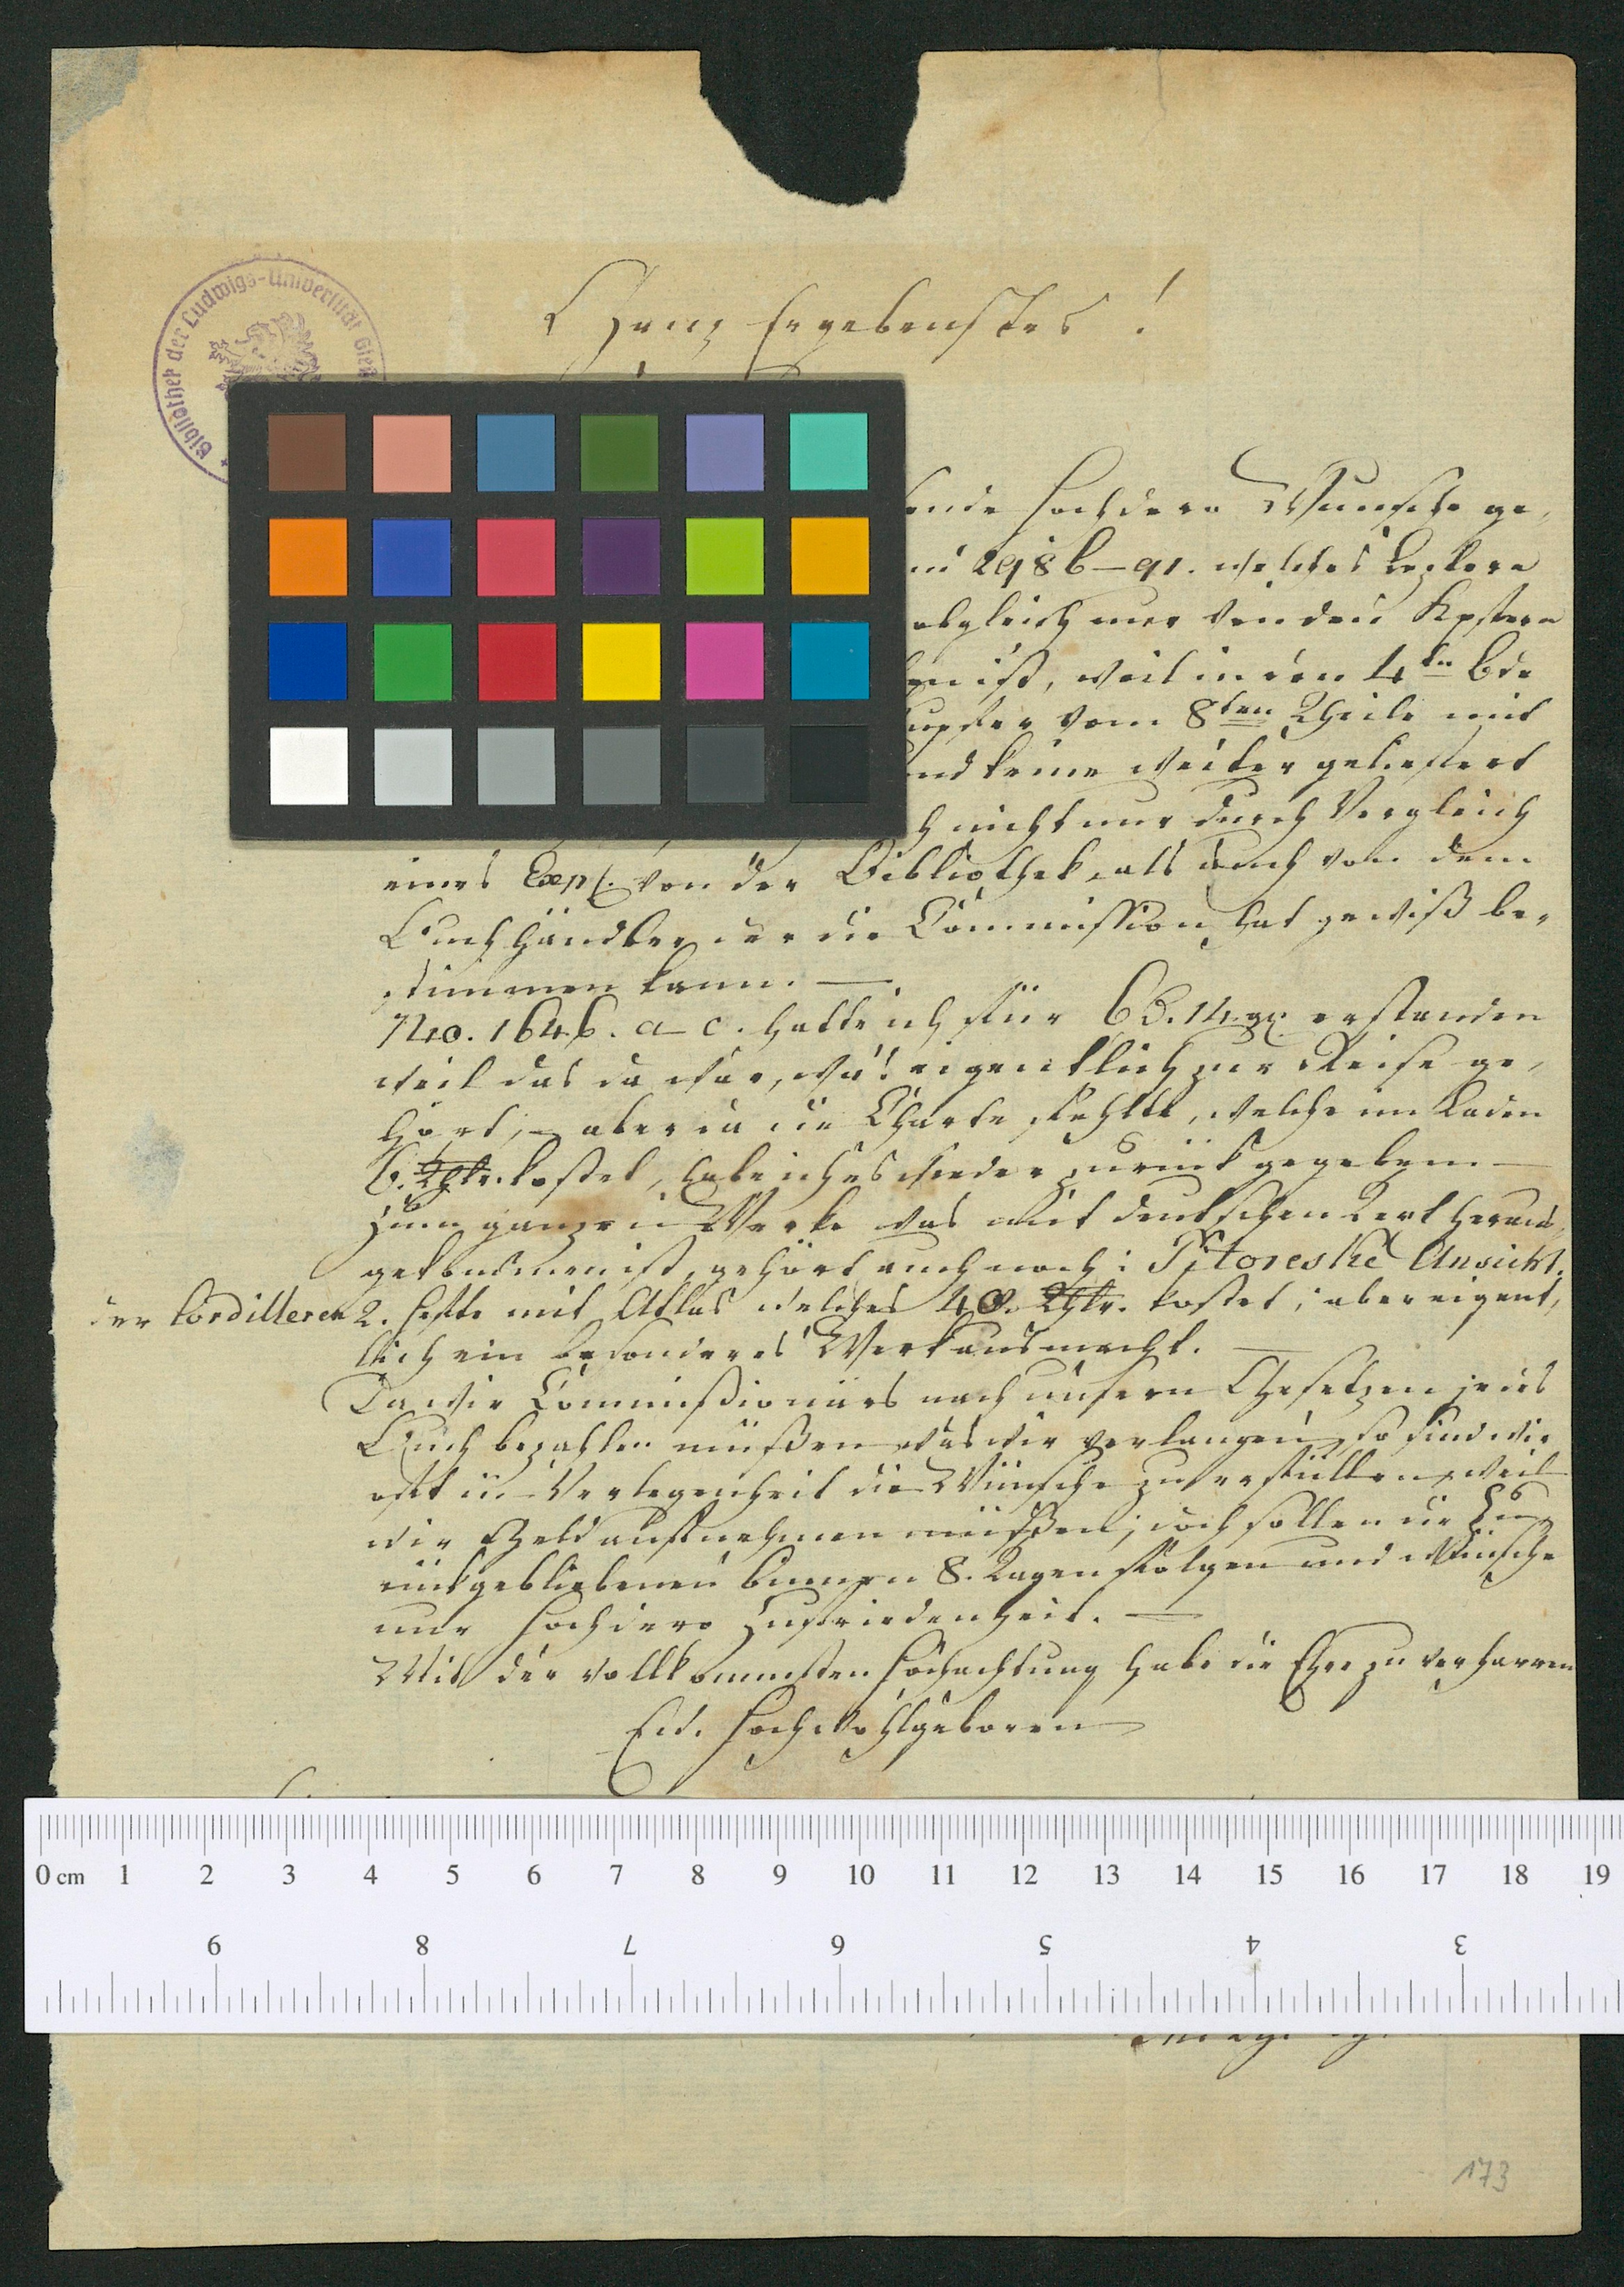 Ganz Ergebenstes!
Bibliothek der Ludwigs-Universität Gieß
Hochdero Wunsche ge,
2986-91. welches Letztere
obgleich nur von den Kpfern
ist, weil in den 4ten bde
vom 8ten Theile mit
und keine weiter geliefert
nicht nur durch Vergleich
eines Expl. von der Bibliothek, als auch von dem
Buchhändler der die Commission hat gewiß be-
stimmen kann. —
No. 1646. a-c. hatte ich für 6 14 gr. erstanden
weil das da war, was eigentlich zur Reise ge,
hört, – aber da die Charte fehlte, welche im Laden
6. Thlr. kostet, habe ich es wieder zurück gegeben –
Zum ganzen Werke das mit deutschen Text heraus,
gekommen ist, gehört auch noch: Pitoreske Ansicht.
der Cordilleren 2. Hefte mit Atlas welches 40. Thlr. kostet; aber eigent,
lich ein besonderes Werk ausmacht. —
Da wir Commißionairs nach unsern Gesetzen jedes
Buch bezahlen müßen was wir verlangen, so sind wir
oft in Verlegenheit die Wünsche zu erfüllen, weil
wir Geld aufnehmen müßen; doch sollen die Zu
rückgebliebenen binnen 8. Tagen folgen und wünsche
nur Hochdero Zufriedenheit. —
Mit der vollkommensten Hochachtung habe die Ehre zu verharren
Ew. Hochwohlgeboren
0 cm 1 2 3 4 5 6 7 8 9 10 11 12 13 14 15 16 17 18 19
9 8 7 6 5 4 3
173